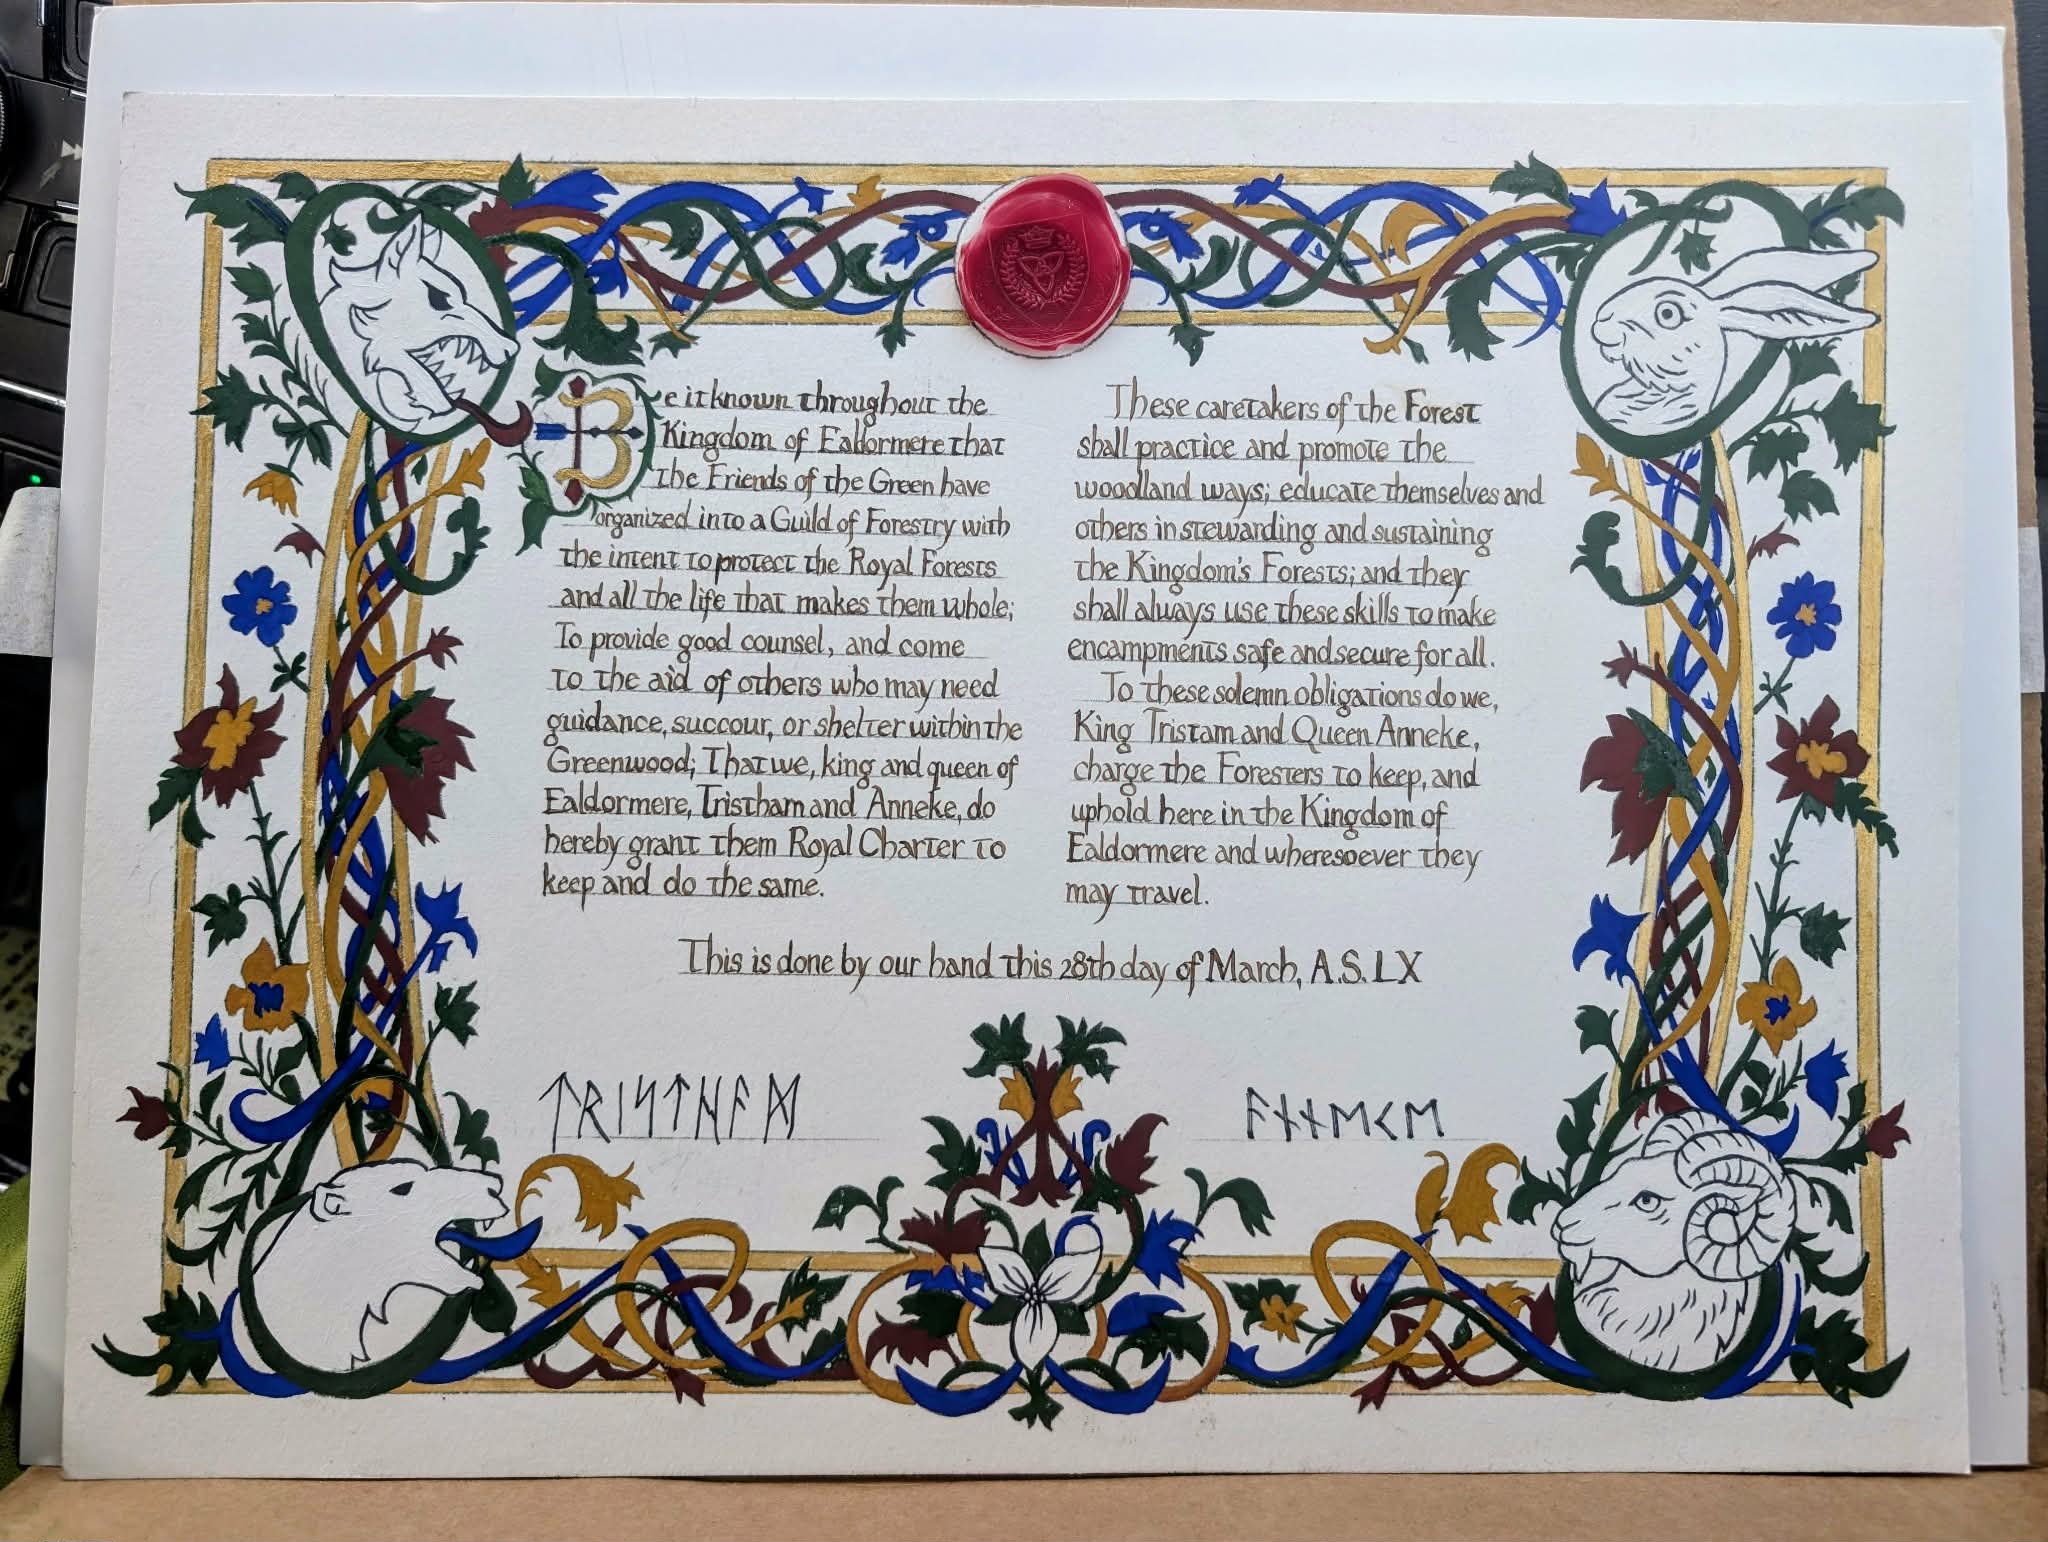 Be it known throughout the
Kingdom of Ealdormere that
the Friends of the Green have
organized into a Guild of Forestry with
the intent to protect the Royal Forests
and all the life that makes them whole;
To provide good counsel, and come
to the aid of others who may need
guidance, succour, or shelter within the
Greenwood; That we, king and queen of
Ealdormere, Tristham and Anneke, do
hereby grant them Royal Charter to
keep and do the same.
These caretakers of the Forest
shall practice and promote the
woodland ways; educate themselves and
others in stewarding and sustaining
the Kingdom's Forests; and they
shall always use these skills to make
encampments safe and secure for all.
To these solemn obligations do we,
King Tristam and Queen Anneke,
charge the Foresters to keep, and
uphold here in the Kingdom of
Ealdormere and wheresoever they
may travel.
This is done by our hand this 28th day of March, A.S. LX
ᛏᚱᛁᛋᛏᚺᚨᛗ
ᚨᚾᚾᛖᚲᛖ